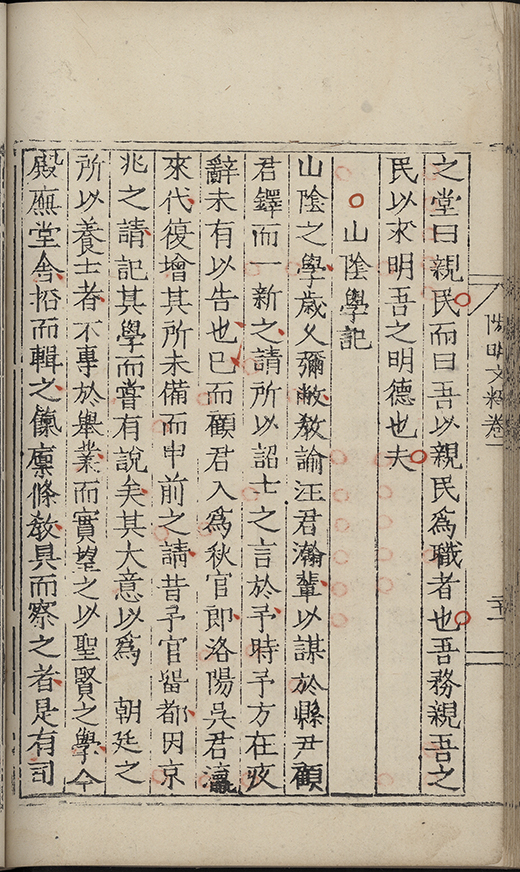 之堂曰親民而曰吾以親民爲職者也吾務親吾之
民以求明吾之明德也夫
山陰學記
山陰之學歲久彌敝教諭汪君瀚輩以謀於縣尹顧
君鐸而一新之請所以詔士之言於予時予方在疚
辭未有以告也已而顧君入爲秋官郎洛陽吳君瀛
來代復增其所未備而申前之請昔予官留都因京
兆之請記其學而嘗有說矣其大意以爲 朝廷之
所以養士者不專於舉業而實望之以聖賢之學今
殿廡堂舍拓而輯之餼廩條教具而察之者是有司
陽明文粹卷一